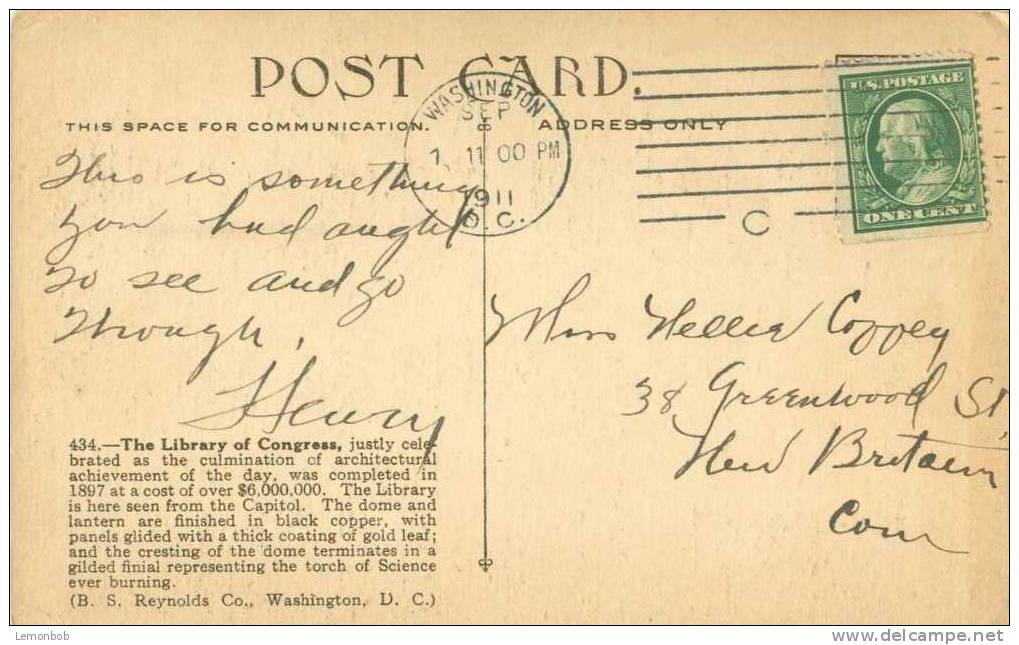 POST CARD.
THIS SPACE FOR COMMUNICATION.
ADDRESS ONLY
WASHINGTON
SEP
8
1 11 00 PM
1911
D.C.
C
U.S. POSTAGE
ONE CENT
This is something
you had ought
to see and go
through,
Henry
434.—The Library of Congress, justly cele-
brated as the culmination of architectural
achievement of the day, was completed in
1897 at a cost of over $6,000,000. The Library
is here seen from the Capitol. The dome and
lantern are finished in black copper, with
panels glided with a thick coating of gold leaf;
and the cresting of the dome terminates in a
gilded finial representing the torch of Science
ever burning.
(B. S. Reynolds Co., Washington, D. C.)
Miss Nellie Coppey
38 Greenwood St,
New Britain
Con
Lemonbob
www.delcampe.net